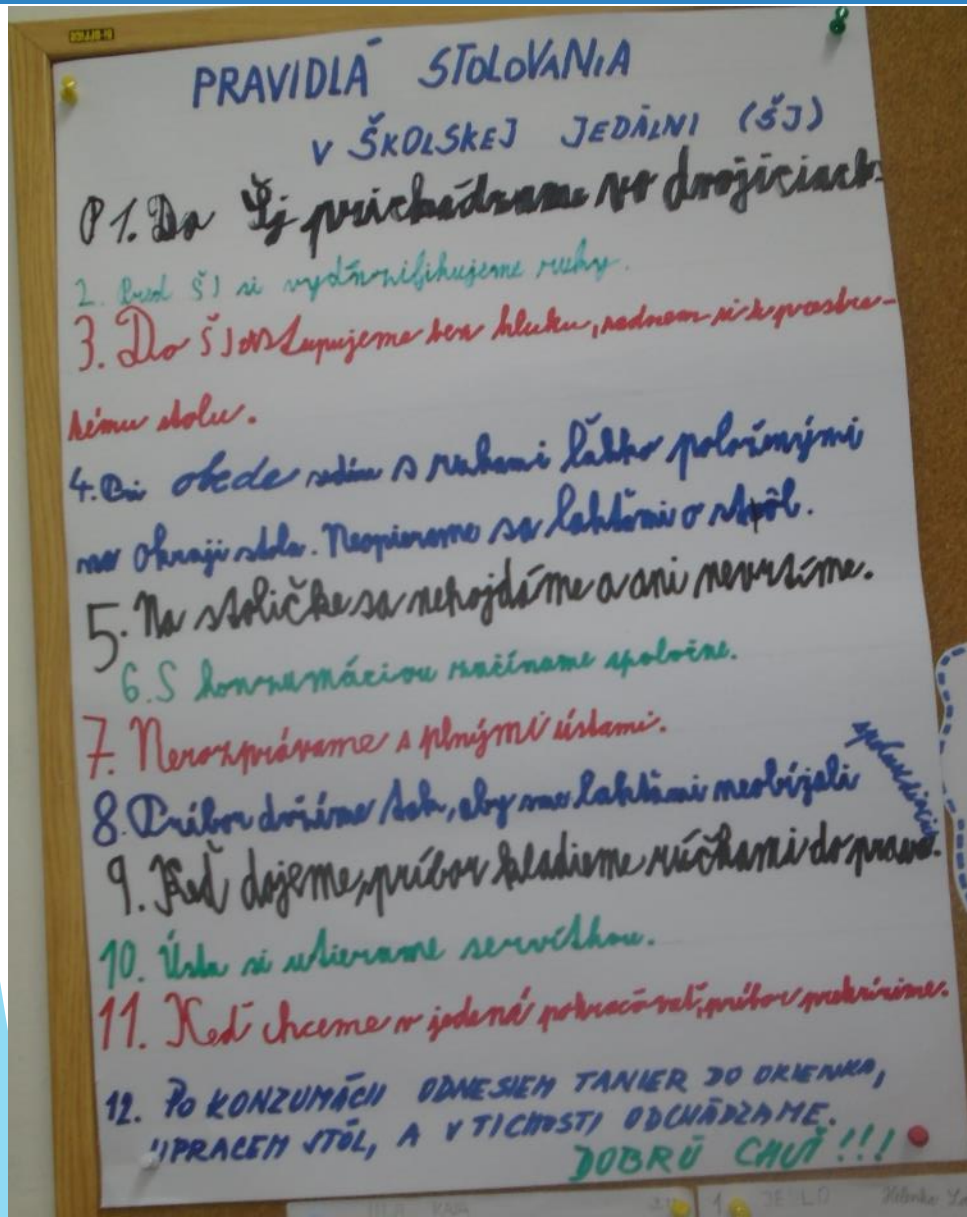 PRAVIDLÁ STOLOVANIA
V ŠKOLSKEJ JEDÁLNI (ŠJ)
P 1. Do Šj prichádzame vo dvojiciach.
2. Pred ŠJ si vydäznifikujeme ruky.
3. Do ŠJ vstupujeme bez hluku, sadnem si k prestre-
tému stolu.
4. Pri obede sedíme s rukami ľahko položenými
na okraji stola. Neopierame sa lakťami o stôl.
5. Na stoličke sa nehojdáme a ani nevrtíme.
6. S konzumáciou začíname spoločne.
7. Nerozprávame s plnými ústami.
8. Príbor držíme tak, aby sme lakťami neobíjali
spolusediacich
9. Keď dojeme, príbor kladieme rúčkami do prava.
10. Ústa si utierame servítkou.
11. Keď chceme v jedená pokračovať, príbor prekrížime.
12. PO KONZUMÁCII ODNESIEM TANIER DO OKIENKA,
UPRACEM STÔL, A V TICHOSTI ODCHÁDZAME.
DOBRÚ CHUŤ!!!
1. JEDLO